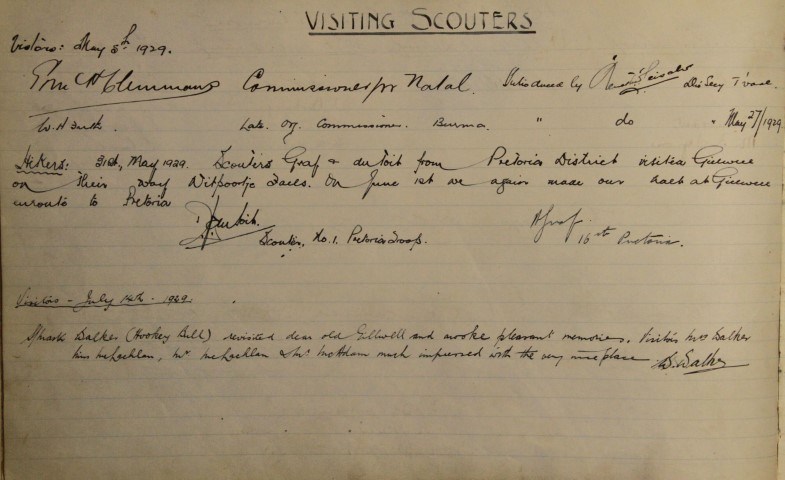 VISITING SCOUTERS
Visitors: May 5th 1929.
Commissioner for Natal. Introduced by Dis Secy T'vaal
W. H. Late. Org. Commissioner. Burma. " do " May 27/1929
Hikers: 31st, May 1929. Scouters Graf & du Toit from Pretoria District visited Gilwell
on their way Witpoortje Falls. On June 1st we again made our halt at Gilwell
enroute to Pretoria
du Toit.
Scouter, No. 1. Pretoria Troop.
H Graf.
16th Pretoria.
Visitors - July 14th. 1929.
Dalker (Hookey Bill) revisited dear old Gillwell and awoke pleasant memories. Visitors Mrs Dalker
Miss McLachlan, Mr McLachlan & Mr McAdam much impressed with the very nice place.
Dalker